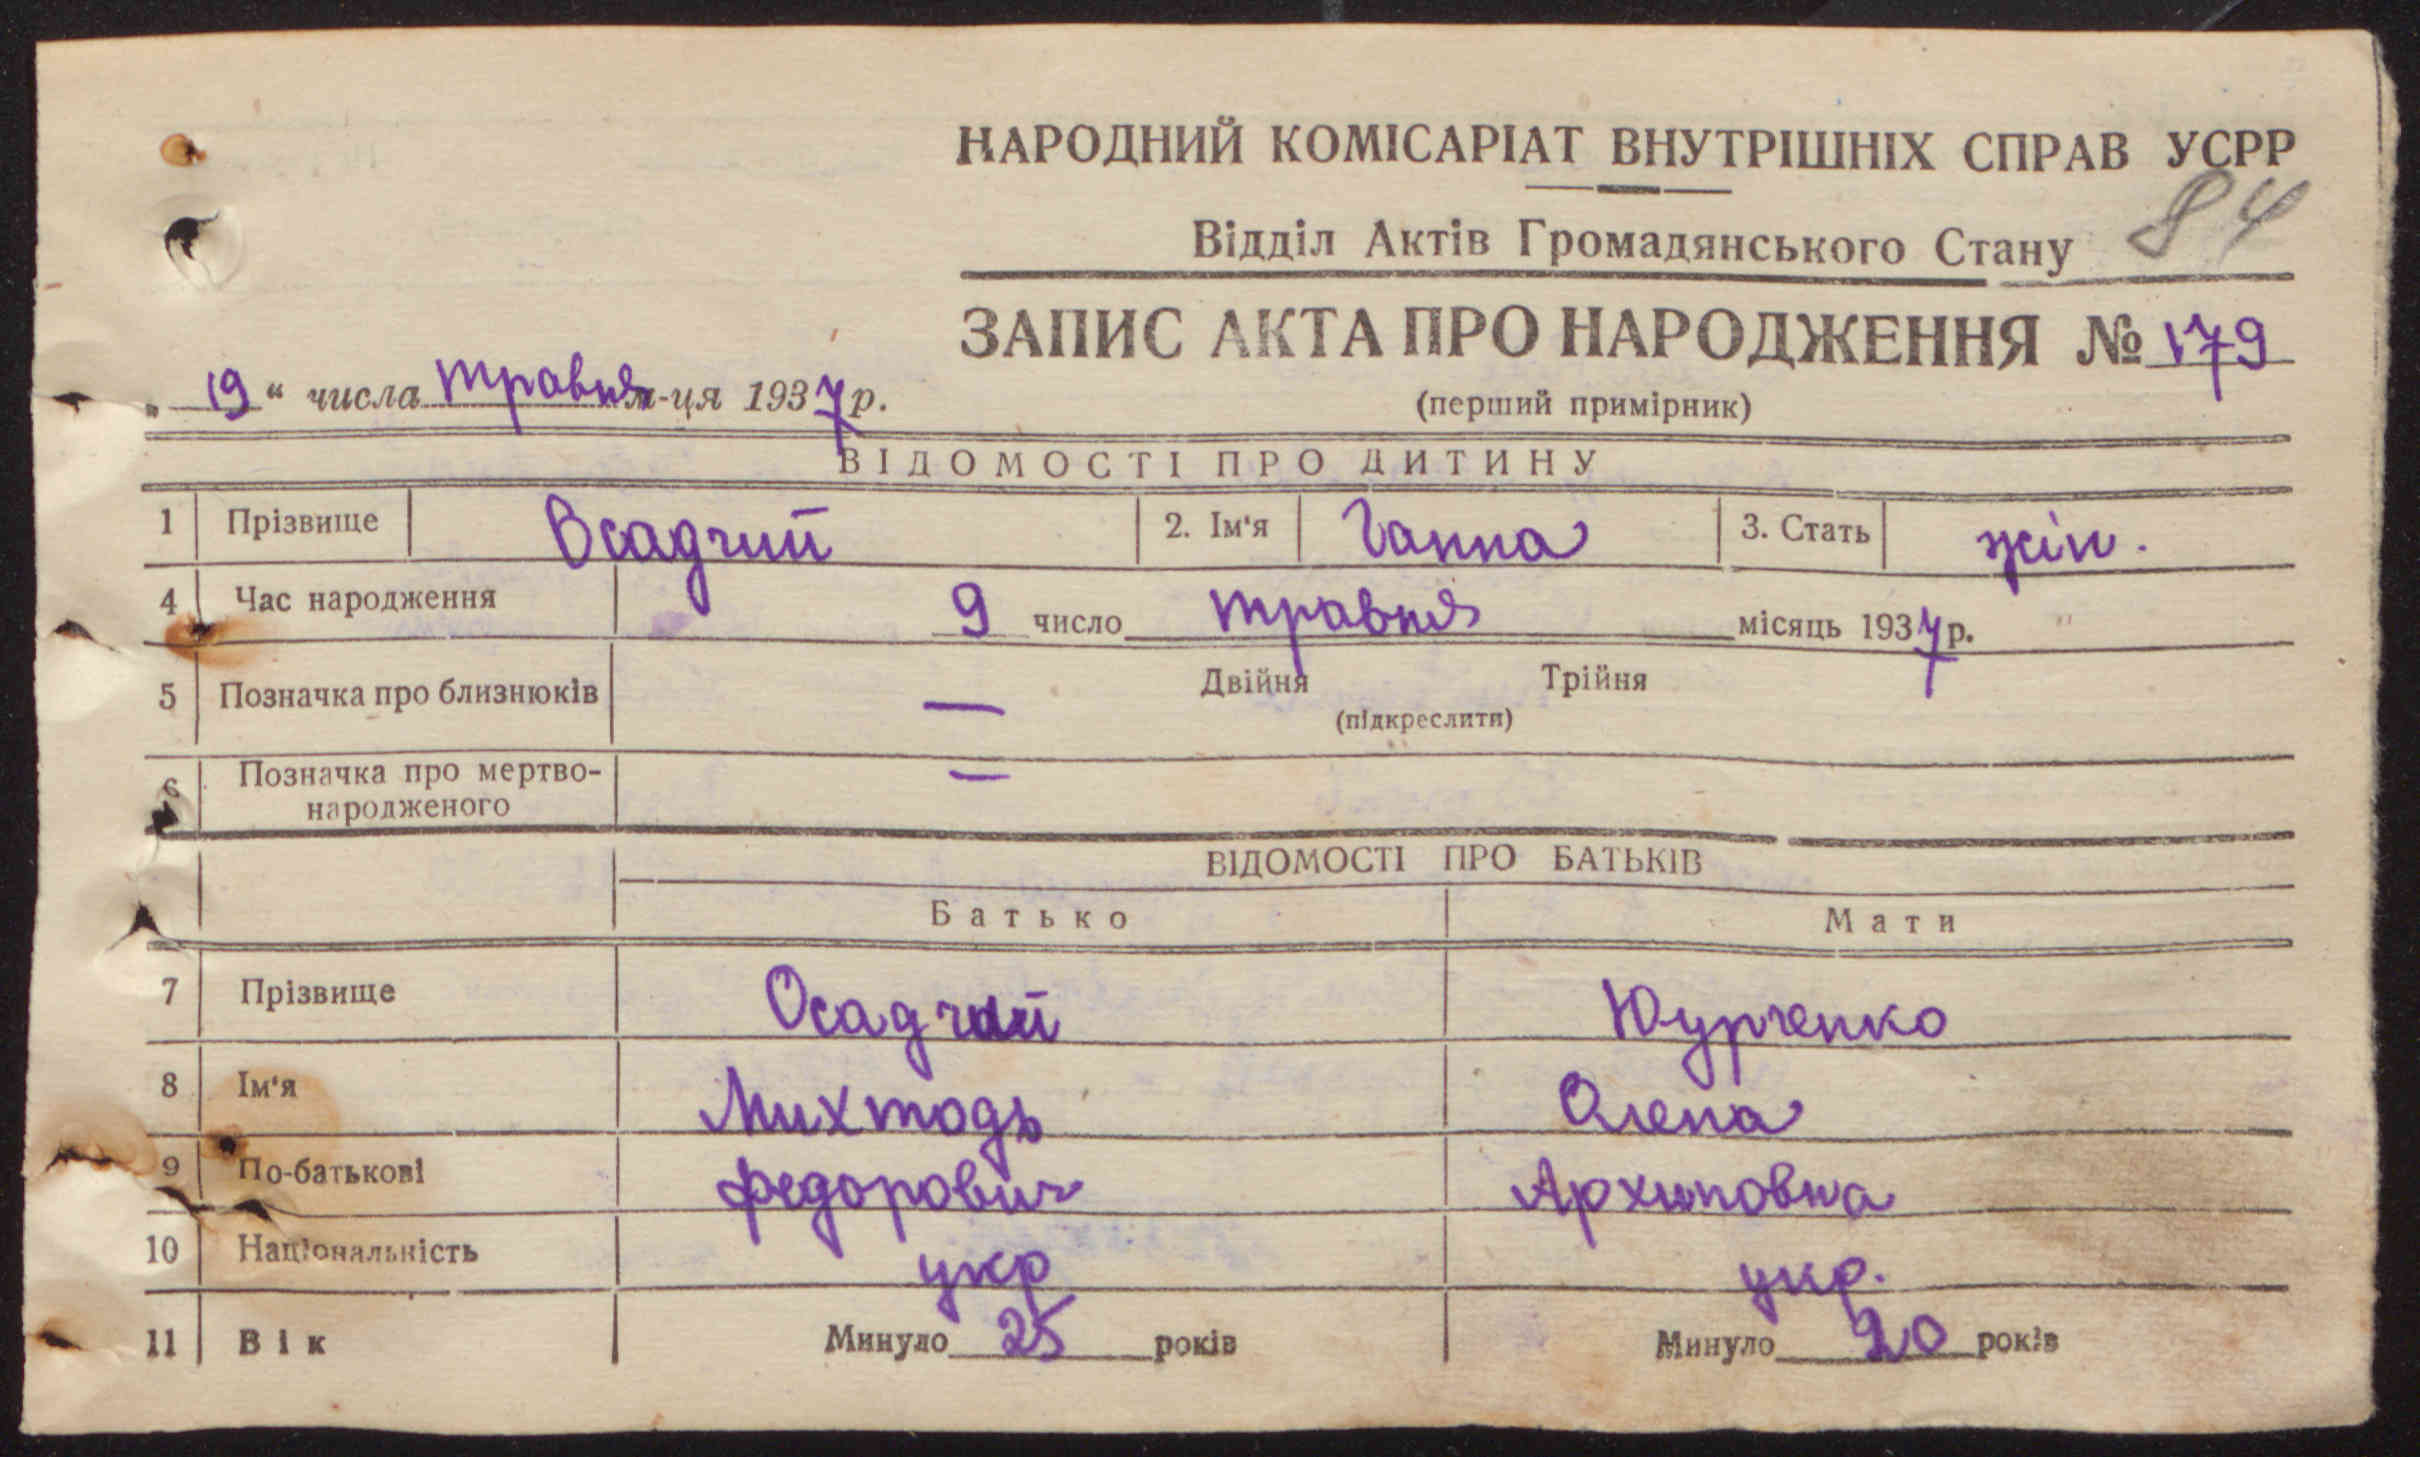 НАРОДНИЙ КОМІСАРІАТ ВНУТРІШНІХ СПРАВ УСРР
84
Відділ Актів Громадянського Стану
ЗАПИС АКТА ПРО НАРОДЖЕННЯ № 179
„ 19 “ числа травня м-ця 1937 р.
(перший примірник)
ВІДОМОСТІ ПРО ДИТИНУ
1 Прізвище Осадчий 2. Ім'я Ганна 3. Стать жін.
4 Час народження 9 число травня місяць 1937 р.
5 Позначка про близнюків — Двійня Трійня
(підкреслити)
6 Позначка про мертво- —
народженого
ВІДОМОСТІ ПРО БАТЬКІВ
Батько Мати
7 Прізвище Осадчий Юурченко
8 Ім'я Михтодь Олена
9 По-батькові Федорович Архиповна
10 Національність укр укр.
11 Вік Минуло 25 років Минуло 20 років